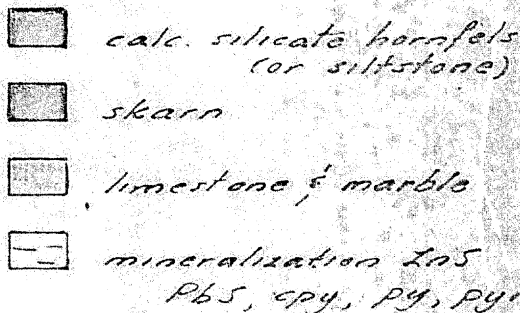 calc. silicate hornfels
(or siltstone)
skarn
limestone & marble
mineralization ZnS
PbS, cpy, py,